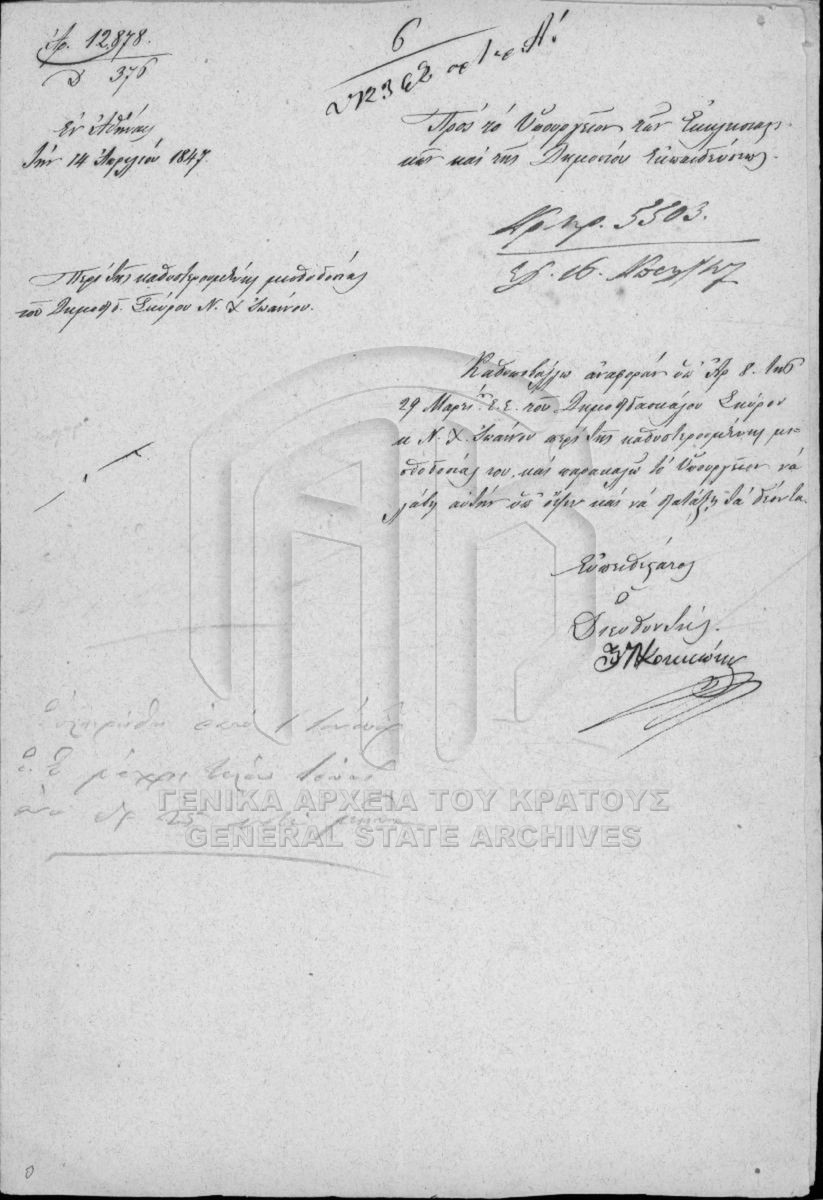 Ἀρ. 12,878.
Δ 376
6
Ἐν Ἀθήναις
τὴν 14 Ἀπριλίου 1847.
Πρὸς τὸ Ὑπουργεῖον τῶν Ἐκκλησιαστι-
κῶν καὶ τῆς Δημοσίου Ἐκπαιδεύσεως.
Ἀρ. πρ. 5503.
Περὶ τῆς καθυστερουμένης μισθοδοσίας
τοῦ Δημοδ. Σκύρου Ν. Χ Ἰωάννου.
Καθυποβάλλω ἀναφορὰν ὑπ' Ἀρ 8. τῆς
29 Μαρτίου ἔ.ἔ. τοῦ Δημοδιδασκάλου Σκύρου
κ Ν. Χ. Ἰωάννου περὶ τῆς καθυστερουμένης μι-
σθοδοσίας του, καὶ παρακαλῶ τὸ Ὑπουργεῖον νὰ
λάβῃ αὐτὴν ὑπ' ὄψιν καὶ νὰ διατάξῃ τὰ δέοντα.
Εὐπειθέστατος
ὁ
Διευθυντής.
Ἰ Π Κοκκώνης
μέχρι τέλους
ΓΕΝΙΚΑ ΑΡΧΕΙΑ ΤΟΥ ΚΡΑΤΟΥΣ
GENERAL STATE ARCHIVES